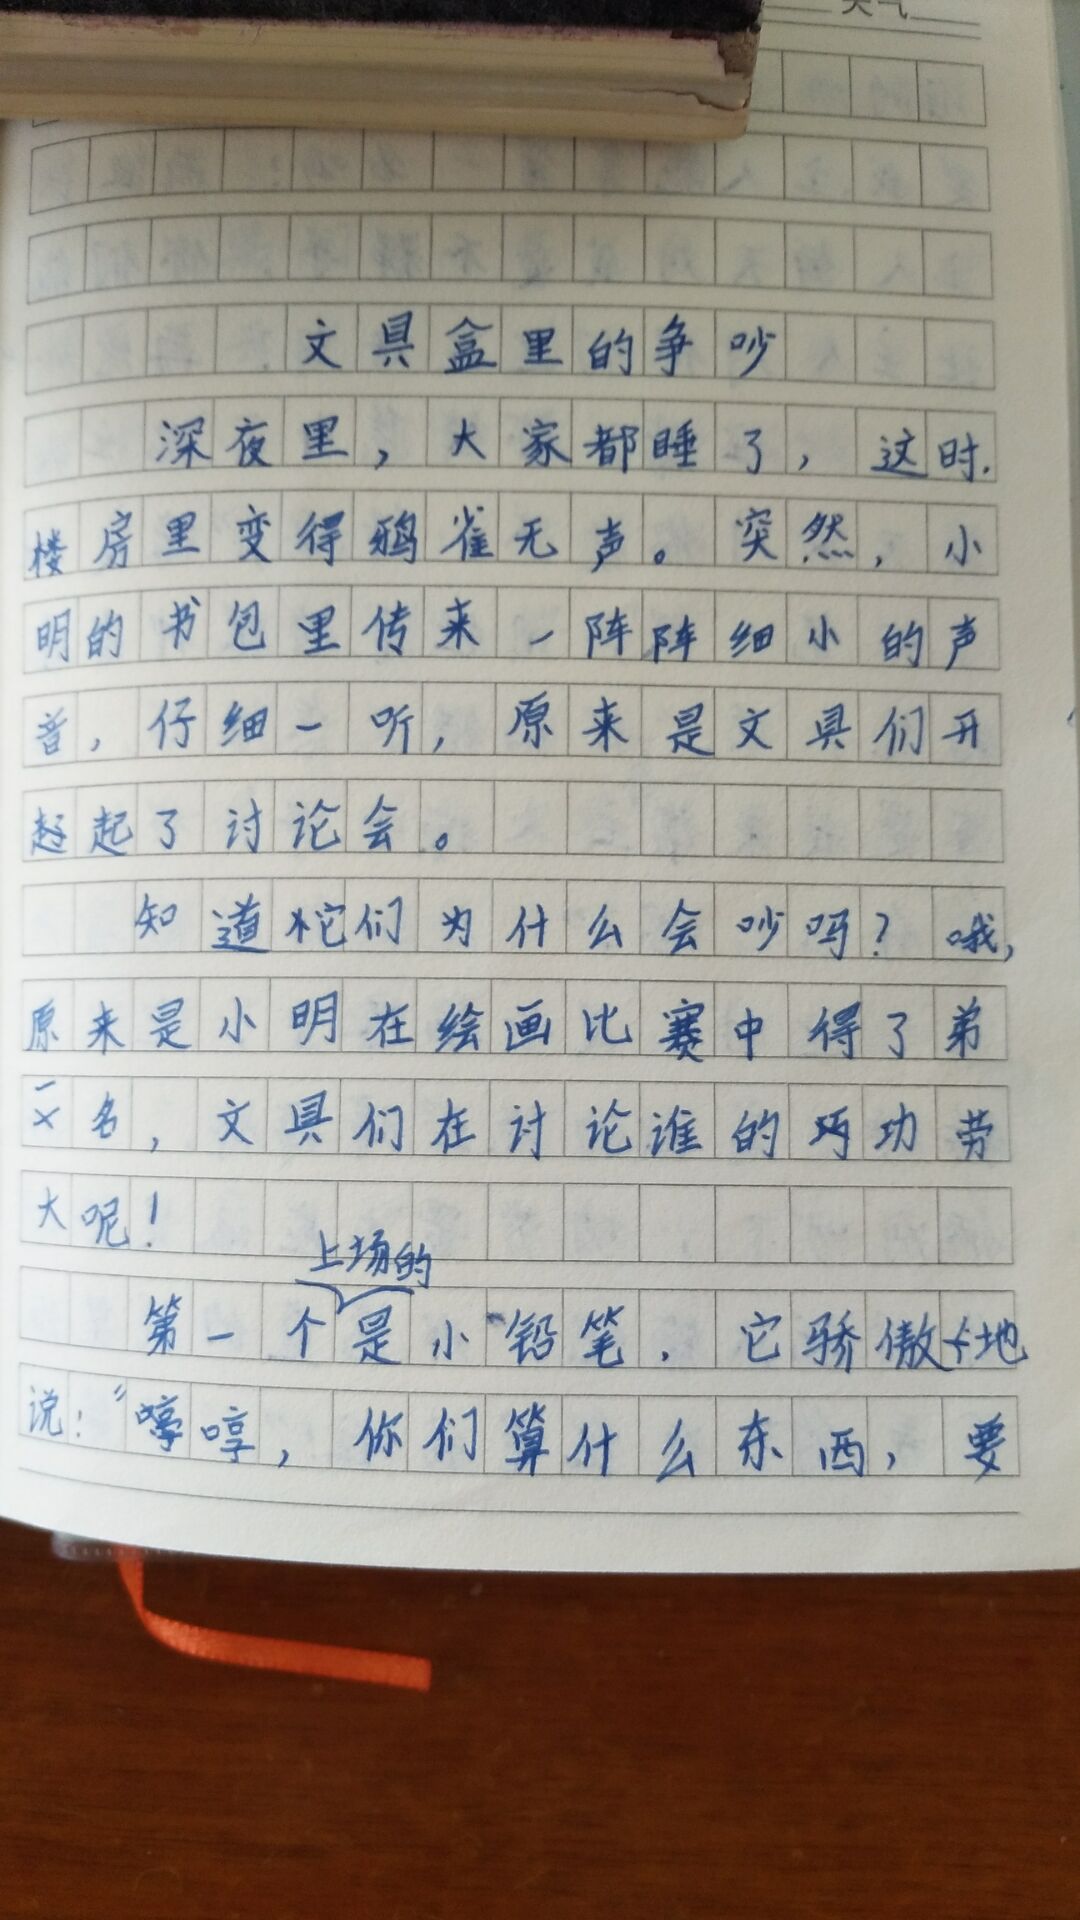 天气
文具盒里的争吵
深夜里，大家都睡了，这时，
楼房里变得鸦雀无声。突然，小
明的书包里传来一阵阵细小的声
音，仔细一听，原来是文具们开
起了讨论会。
知道它们为什么会吵吗？哦，
原来是小明在绘画比赛中得了弟
一名，文具们在讨论谁的功劳
大呢！
上场的
第一个是小铅笔，它骄傲地
说：“哼哼，你们算什么东西，要